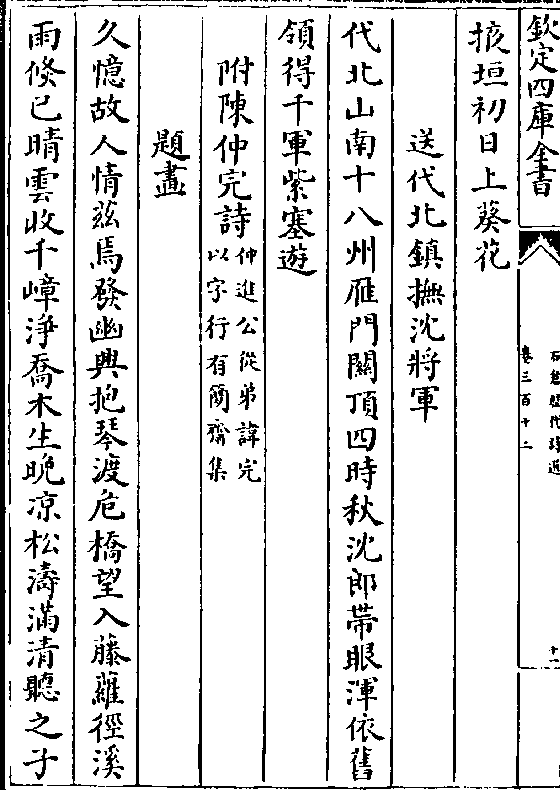 欽定四庫全書
卷三百十二
掖垣初日上葵花
送代北鎮撫沈將軍
代北山南十八州雁門關頂四時秋沈郎帶眼渾依舊
領得千軍紫塞遊
附陳仲完詩仲進公從弟諱完以字行有簡齋集
題畫
久憶故人情茲焉發幽興抱琴渡危橋望入藤蘿徑溪
雨倐已晴雲收千嶂淨喬木生晚凉松濤滿清聽之子